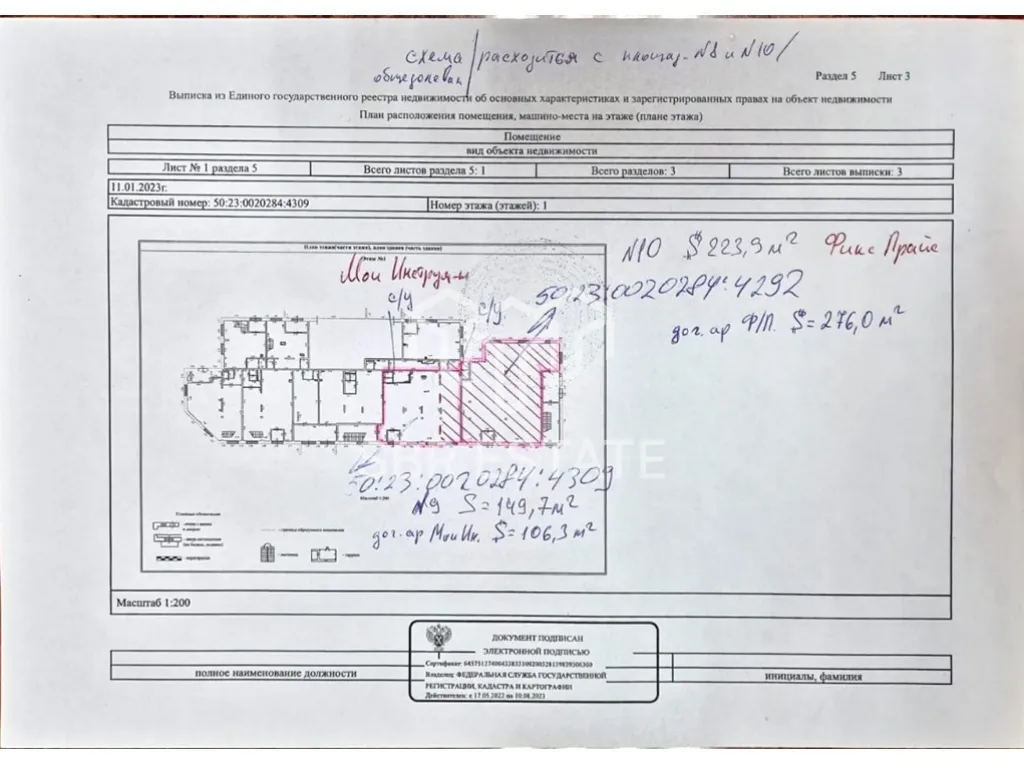 схема / расходится с площад. N8 и N10/
Раздел 5 Лист 3
Выписка из Единого государственного реестра недвижимости об основных характеристиках и зарегистрированных правах на объект недвижимости
План расположения помещения, машино-места на этаже (плане этажа)
Помещение
вид объекта недвижимости
Лист № 1 раздела 5 Всего листов раздела 5: 1 Всего разделов: 3 Всего листов выписки: 3
11.01.2023г.
Кадастровый номер: 50:23:0020284:4309 Номер этажа (этажей): 1
План этажа(части этажа), план здания (части здания)
Этаж №1
N10 S 223,9 м² Фикс Прайс
Мои Инструм-ы
с/у
с/у.
50:23:0020284:4292
дог. ар Ф/П. S=276,0 м²
SHR ESTATE
50:23:0020284:4309
N9 S=149,7м²
Масштаб 1:200
дог. ар Мои Ин. S=106,3 м²
Условные обозначения
Масштаб 1:200
ДОКУМЕНТ ПОДПИСАН
ЭЛЕКТРОННОЙ ПОДПИСЬЮ
Сертификат:
Владелец: ФЕДЕРАЛЬНАЯ СЛУЖБА ГОСУДАРСТВЕННОЙ
РЕГИСТРАЦИИ, КАДАСТРА И КАРТОГРАФИИ
Действителен: с 17.05.2022 по 10.08.2023
полное наименование должности инициалы, фамилия